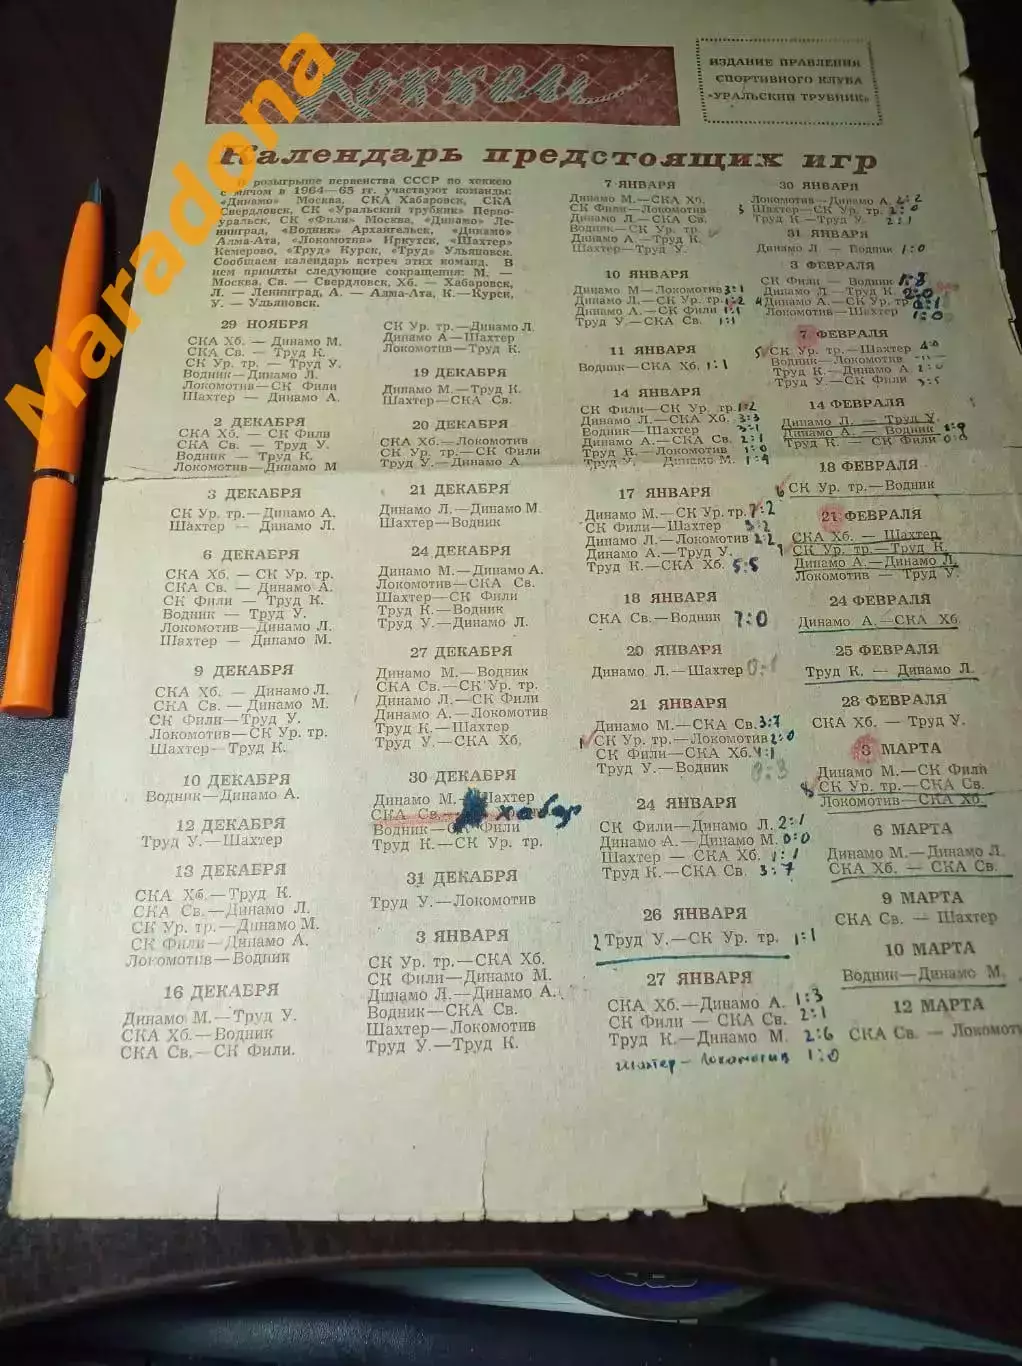 Maradona
Хоккей
ИЗДАНИЕ ПРАВЛЕНИЯ
СПОРТИВНОГО КЛУБА
«УРАЛЬСКИЙ ТРУБНИК»
Календарь предстоящих игр
В розыгрыше первенства СССР по хоккею
с мячом в 1964—65 гг. участвуют команды:
«Динамо» Москва, СКА Хабаровск, СКА
Свердловск, СК «Уральский трубник» Перво-
уральск, СК «Фили» Москва, «Динамо» Ле-
нинград, «Водник» Архангельск, «Динамо»
Алма-Ата, «Локомотив» Иркутск, «Шахтер»
Кемерово, «Труд» Курск, «Труд» Ульяновск.
Сообщаем календарь встреч этих команд. В
нем приняты следующие сокращения: М. —
Москва, Св. — Свердловск, Хб. — Хабаровск,
Л. — Ленинград, А. — Алма-Ата, К.—Курск,
У. — Ульяновск.
29 НОЯБРЯ
СКА Хб. — Динамо М.
СКА Св. — Труд К.
СК Ур. тр. — Труд У.
Водник—Динамо Л.
Локомотив—СК Фили
Шахтер — Динамо А.
2 ДЕКАБРЯ
СКА Хб. — СК Фили
СКА Св. — Труд У.
Водник — Труд К.
Локомотив—Динамо М
3 ДЕКАБРЯ
СК Ур. тр.—Динамо А.
Шахтер — Динамо Л.
6 ДЕКАБРЯ
СКА Хб. — СК Ур. тр.
СКА Св. — Динамо А.
СК Фили — Труд К.
Водник — Труд У.
Локомотив—Динамо Л.
Шахтер — Динамо М.
9 ДЕКАБРЯ
СКА Хб. — Динамо Л.
СКА Св. — Динамо М.
СК Фили—Труд У.
Локомотив—СК Ур. тр.
Шахтер—Труд К.
10 ДЕКАБРЯ
Водник—Динамо А.
12 ДЕКАБРЯ
Труд У.—Шахтер
13 ДЕКАБРЯ
СКА Хб.—Труд К.
СКА Св.—Динамо Л.
СК Ур. тр.—Динамо М.
СК Фили—Динамо А.
Локомотив—Водник
16 ДЕКАБРЯ
Динамо М.—Труд У.
СКА Хб.—Водник
СКА Св.—СК Фили.
СК Ур. тр.—Динамо Л.
Динамо А—Шахтер
Локомотив—Труд К.
19 ДЕКАБРЯ
Динамо М.—Труд К.
Шахтер—СКА Св.
20 ДЕКАБРЯ
СКА Хб.—Локомотив
СК Ур. тр.—СК Фили
Труд У.—Динамо А
21 ДЕКАБРЯ
Динамо Л.—Динамо М.
Шахтер—Водник
24 ДЕКАБРЯ
Динамо М.—Динамо А.
Локомотив—СКА Св.
Шахтер—СК Фили
Труд К.—Водник
Труд У.—Динамо Л.
27 ДЕКАБРЯ
Динамо М.—Водник
СКА Св.—СК Ур. тр.
Динамо Л.—СК Фили
Динамо А.—Локомотив
Труд К.—Шахтер
Труд У.—СКА Хб.
30 ДЕКАБРЯ
Динамо М.—Шахтер
СКА Св.— хабар
Водник—СК Фили
Труд К.—СК Ур. тр.
31 ДЕКАБРЯ
Труд У.—Локомотив
3 ЯНВАРЯ
СК Ур. тр.—СКА Хб.
СК Фили—Динамо М.
Динамо Л.—Динамо А.
Водник—СКА Св.
Шахтер—Локомотив
Труд У.—Труд К.
7 ЯНВАРЯ
Динамо М.—СКА Хб.
СК Фили—Локомотив
Динамо Л.—СКА Св.
Водник—СК Ур. тр.
Динамо А—Труд К.
Шахтер—Труд У.
10 ЯНВАРЯ
Динамо М—Локомотив 3:1
Динамо Л.—СК Ур. тр. 1:2
Динамо А.—СК Фили 1:1
Труд У.—СКА Св. 1:1
11 ЯНВАРЯ
Водник—СКА Хб. 1:1
14 ЯНВАРЯ
СК Фили—СК Ур. тр. 1:2
Динамо Л.—СКА Хб. 3:3
Водник—Шахтер 3:1
Динамо А.—СКА Св. 2:1
Труд К.—Локомотив 1:0
Труд У. Динамо М. 1:4
17 ЯНВАРЯ
Динамо М.—СК Ур. тр. 7:2
СК Фили—Шахтер 3:2
Динамо Л.—Локомотив 2:2
Динамо А.—Труд У.
Труд К.—СКА Хб. 5:5
18 ЯНВАРЯ
СКА Св.—Водник 7:0
20 ЯНВАРЯ
Динамо Л.—Шахтер 0:1
21 ЯНВАРЯ
Динамо М—СКА Св. 3:7
1 СК Ур. тр.—Локомотив 2:0
СК Фили—СКА Хб. 4:1
Труд У.—Водник 0:3
24 ЯНВАРЯ
СК Фили—Динамо Л. 2:1
Динамо А.—Динамо М. 0:0
Шахтер — СКА Хб. 1:1
Труд К.—СКА Св. 3:7
26 ЯНВАРЯ
2 Труд У.—СК Ур. тр. 1:1
27 ЯНВАРЯ
СКА Хб.—Динамо А. 1:3
СК Фили — СКА Св. 2:1
Труд К.—Динамо М. 2:6
Шахтер - Локомотив 1:0
30 ЯНВАРЯ
Локомотив—Динамо А. 2:2
3 Шахтер—СК Ур. тр. 2:0
Труд К—Труд У. 2:1
31 ЯНВАРЯ
Динамо Л. — Водник 1:0
3 ФЕВРАЛЯ
СК Фили — Водник 1:3
Динамо Л.—Труд К. 2:0
4 Динамо А.—СК Ур. тр
Локомотив—Шахтер 1:0
7 ФЕВРАЛЯ
5 СК Ур. тр.—Шахтер 4:0
Водник—Локомотив
Труд К.—Динамо А. 2:0
Труд У.—СК Фили 3:5
14 ФЕВРАЛЯ
Динамо Л. — Труд У.
Динамо А.— Водник
Труд К.—СК Фили
18 ФЕВРАЛЯ
6 СК Ур. тр.—Водник
21 ФЕВРАЛЯ
СКА Хб. — Шахтер
СК Ур. тр.—Труд К.
Динамо А.—Динамо Л.
Локомотив — Труд У.
24 ФЕВРАЛЯ
Динамо А.—СКА Хб.
25 ФЕВРАЛЯ
Труд К. — Динамо Л.
28 ФЕВРАЛЯ
СКА Хб. — Труд У.
3 МАРТА
Динамо М.—СК Фили
8 СК Ур. тр.—СКА Св.
Локомотив—СКА Хб.
6 МАРТА
Динамо М.—Динамо Л.
СКА Хб. — СКА Св.
9 МАРТА
СКА Св. — Шахтер
10 МАРТА
Водник—Динамо М.
12 МАРТА
СКА Св. — Локомоти